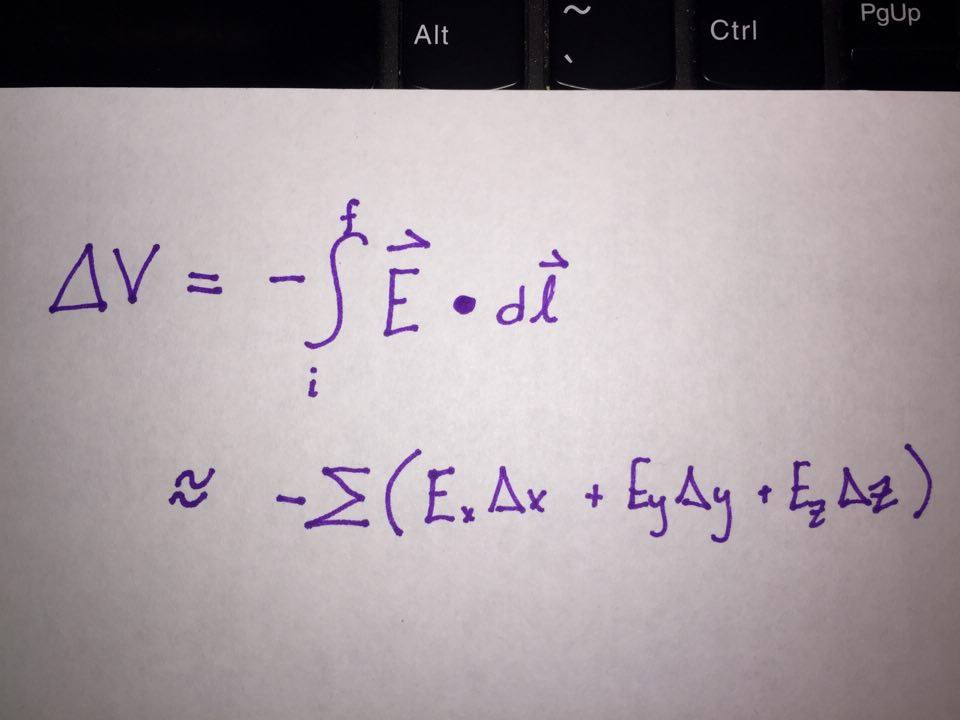 Alt ~ ` Ctrl PgUp
ΔV = -∫ᵢᶠ E⃗ • dl⃗
≈ -Σ(EₓΔx + E_yΔy + E_zΔz)